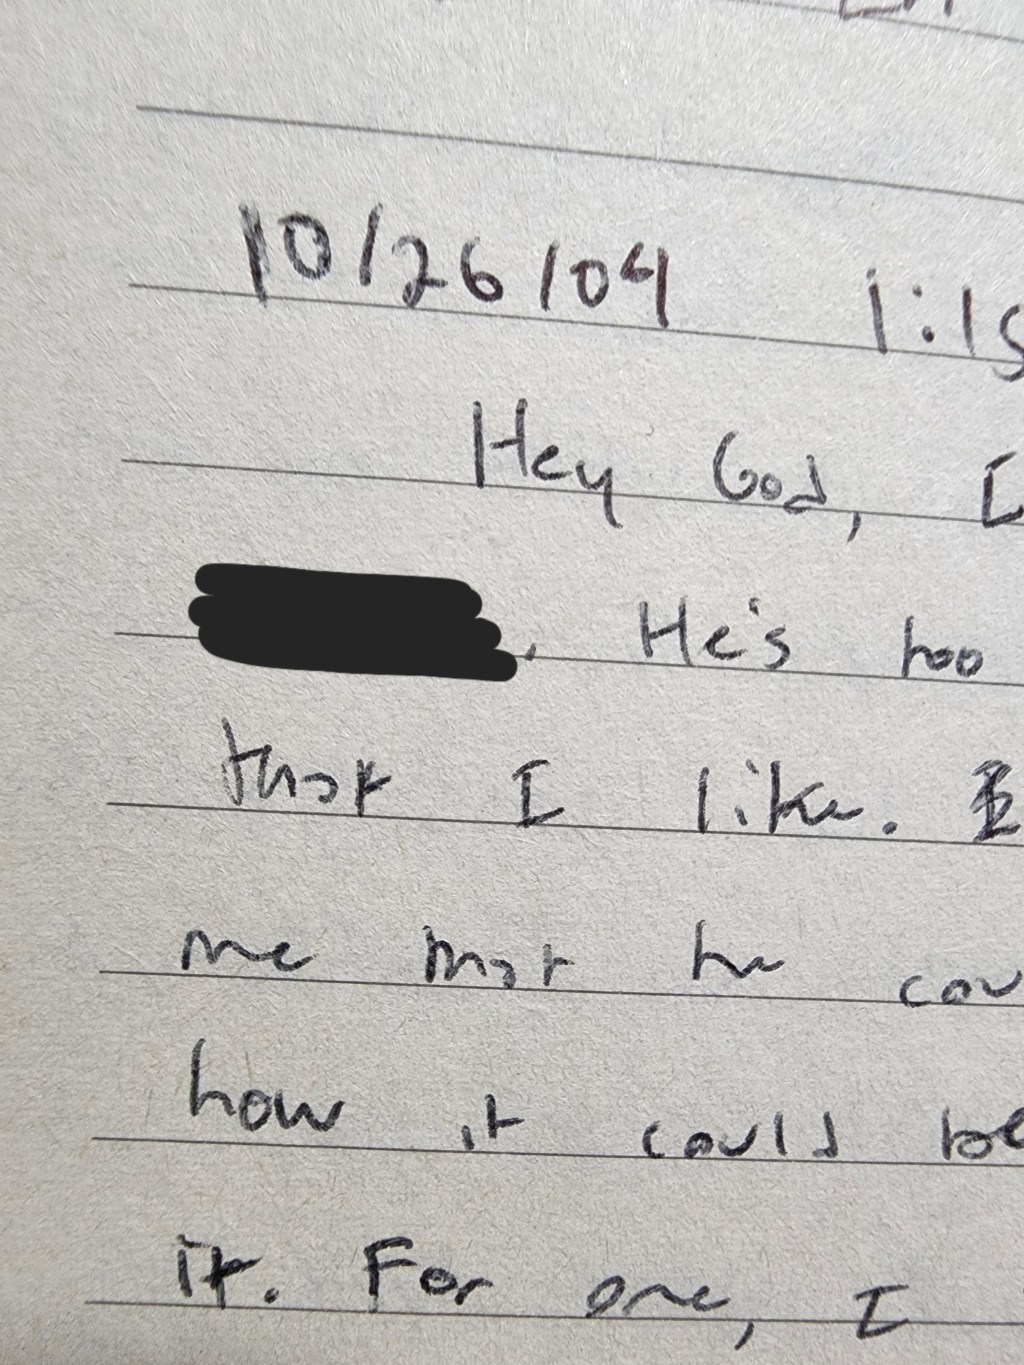 10/26/04 1:15
Hey God, I
. He's too
that I like. I
me that he cou
how it could be
it. For one, I